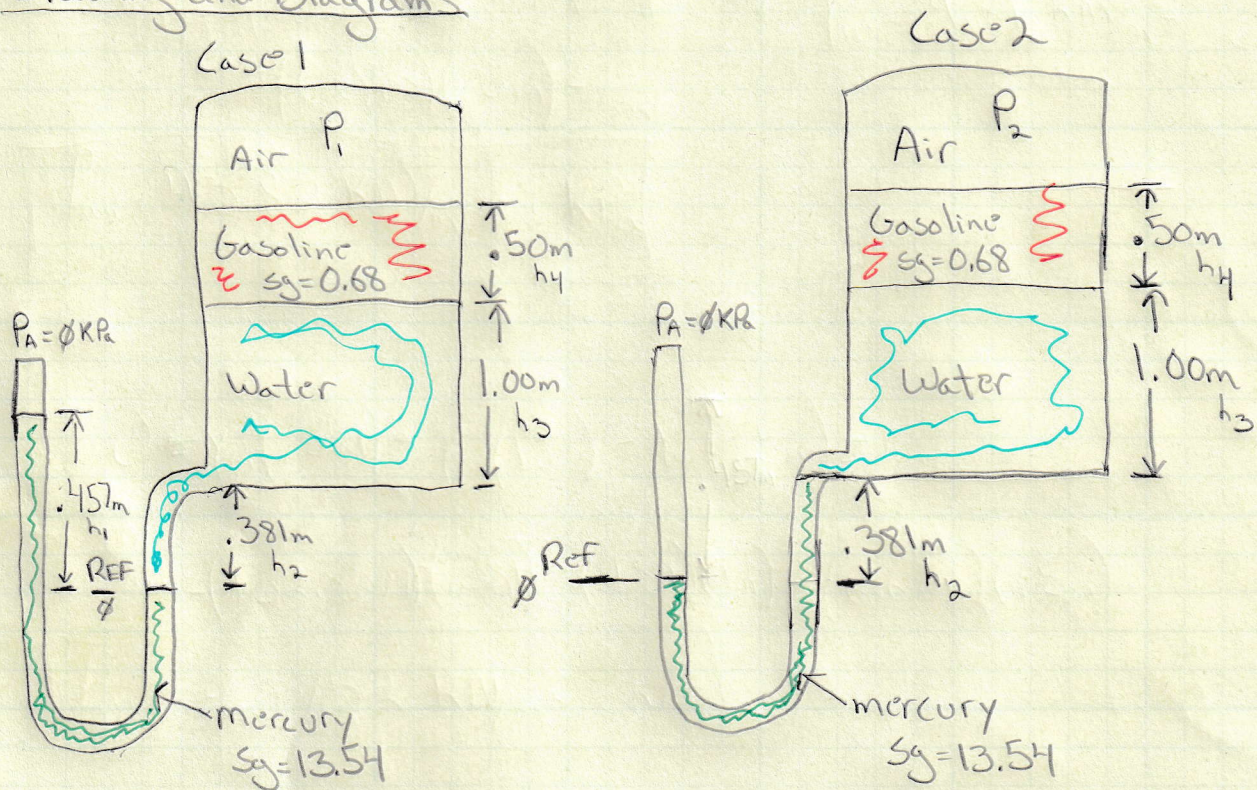 and Diagrams
Case 1
P1
Air
Gasoline
sg=0.68
.50m
h4
PA=∅KPa
Water
1.00m
h3
.457m
h1
REF
∅
.381m
h2
mercury
Sg=13.54
Case 2
P2
Air
Gasoline
sg=0.68
.50m
h4
PA=∅KPa
Water
1.00m
h3
Ref
∅
.381m
h2
mercury
Sg=13.54